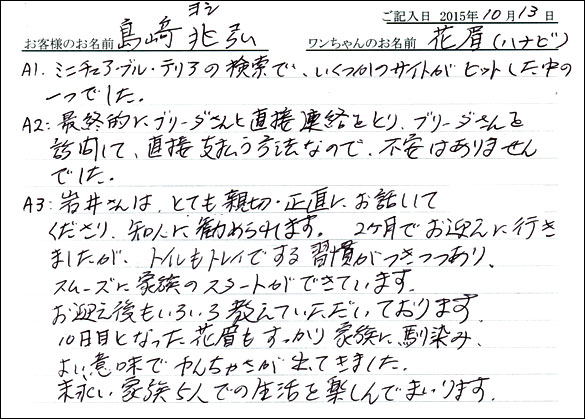 ご記入日 2015年10月13日
ヨシ
お客様のお名前 島﨑 兆弘 ワンちゃんのお名前 花眉(ハナビ)
A1. ミニチュアブル・テリアの検索で、いくつかのサイトがヒットした中の
一つでした。
A2: 最終的に、ブリーダさんと直接連絡をとり、ブリーダさんを
訪問して、直接支払う方法なので、不安はありません
でした。
A3: 岩井さんは、とても親切・正直に、お話して
くださり、知人に勧められます。 2ヶ月でお迎えに行き
ましたが、トイレもトレイでする習慣がつきつつあり、
スムーズに家族のスタートができています。
お迎え後もいろいろ教えていただいております。
10日目となった花眉もすっかり家族に馴染み、
よい意味でやんちゃさが出てきました。
末永い家族5人での生活を楽しんでまいります。